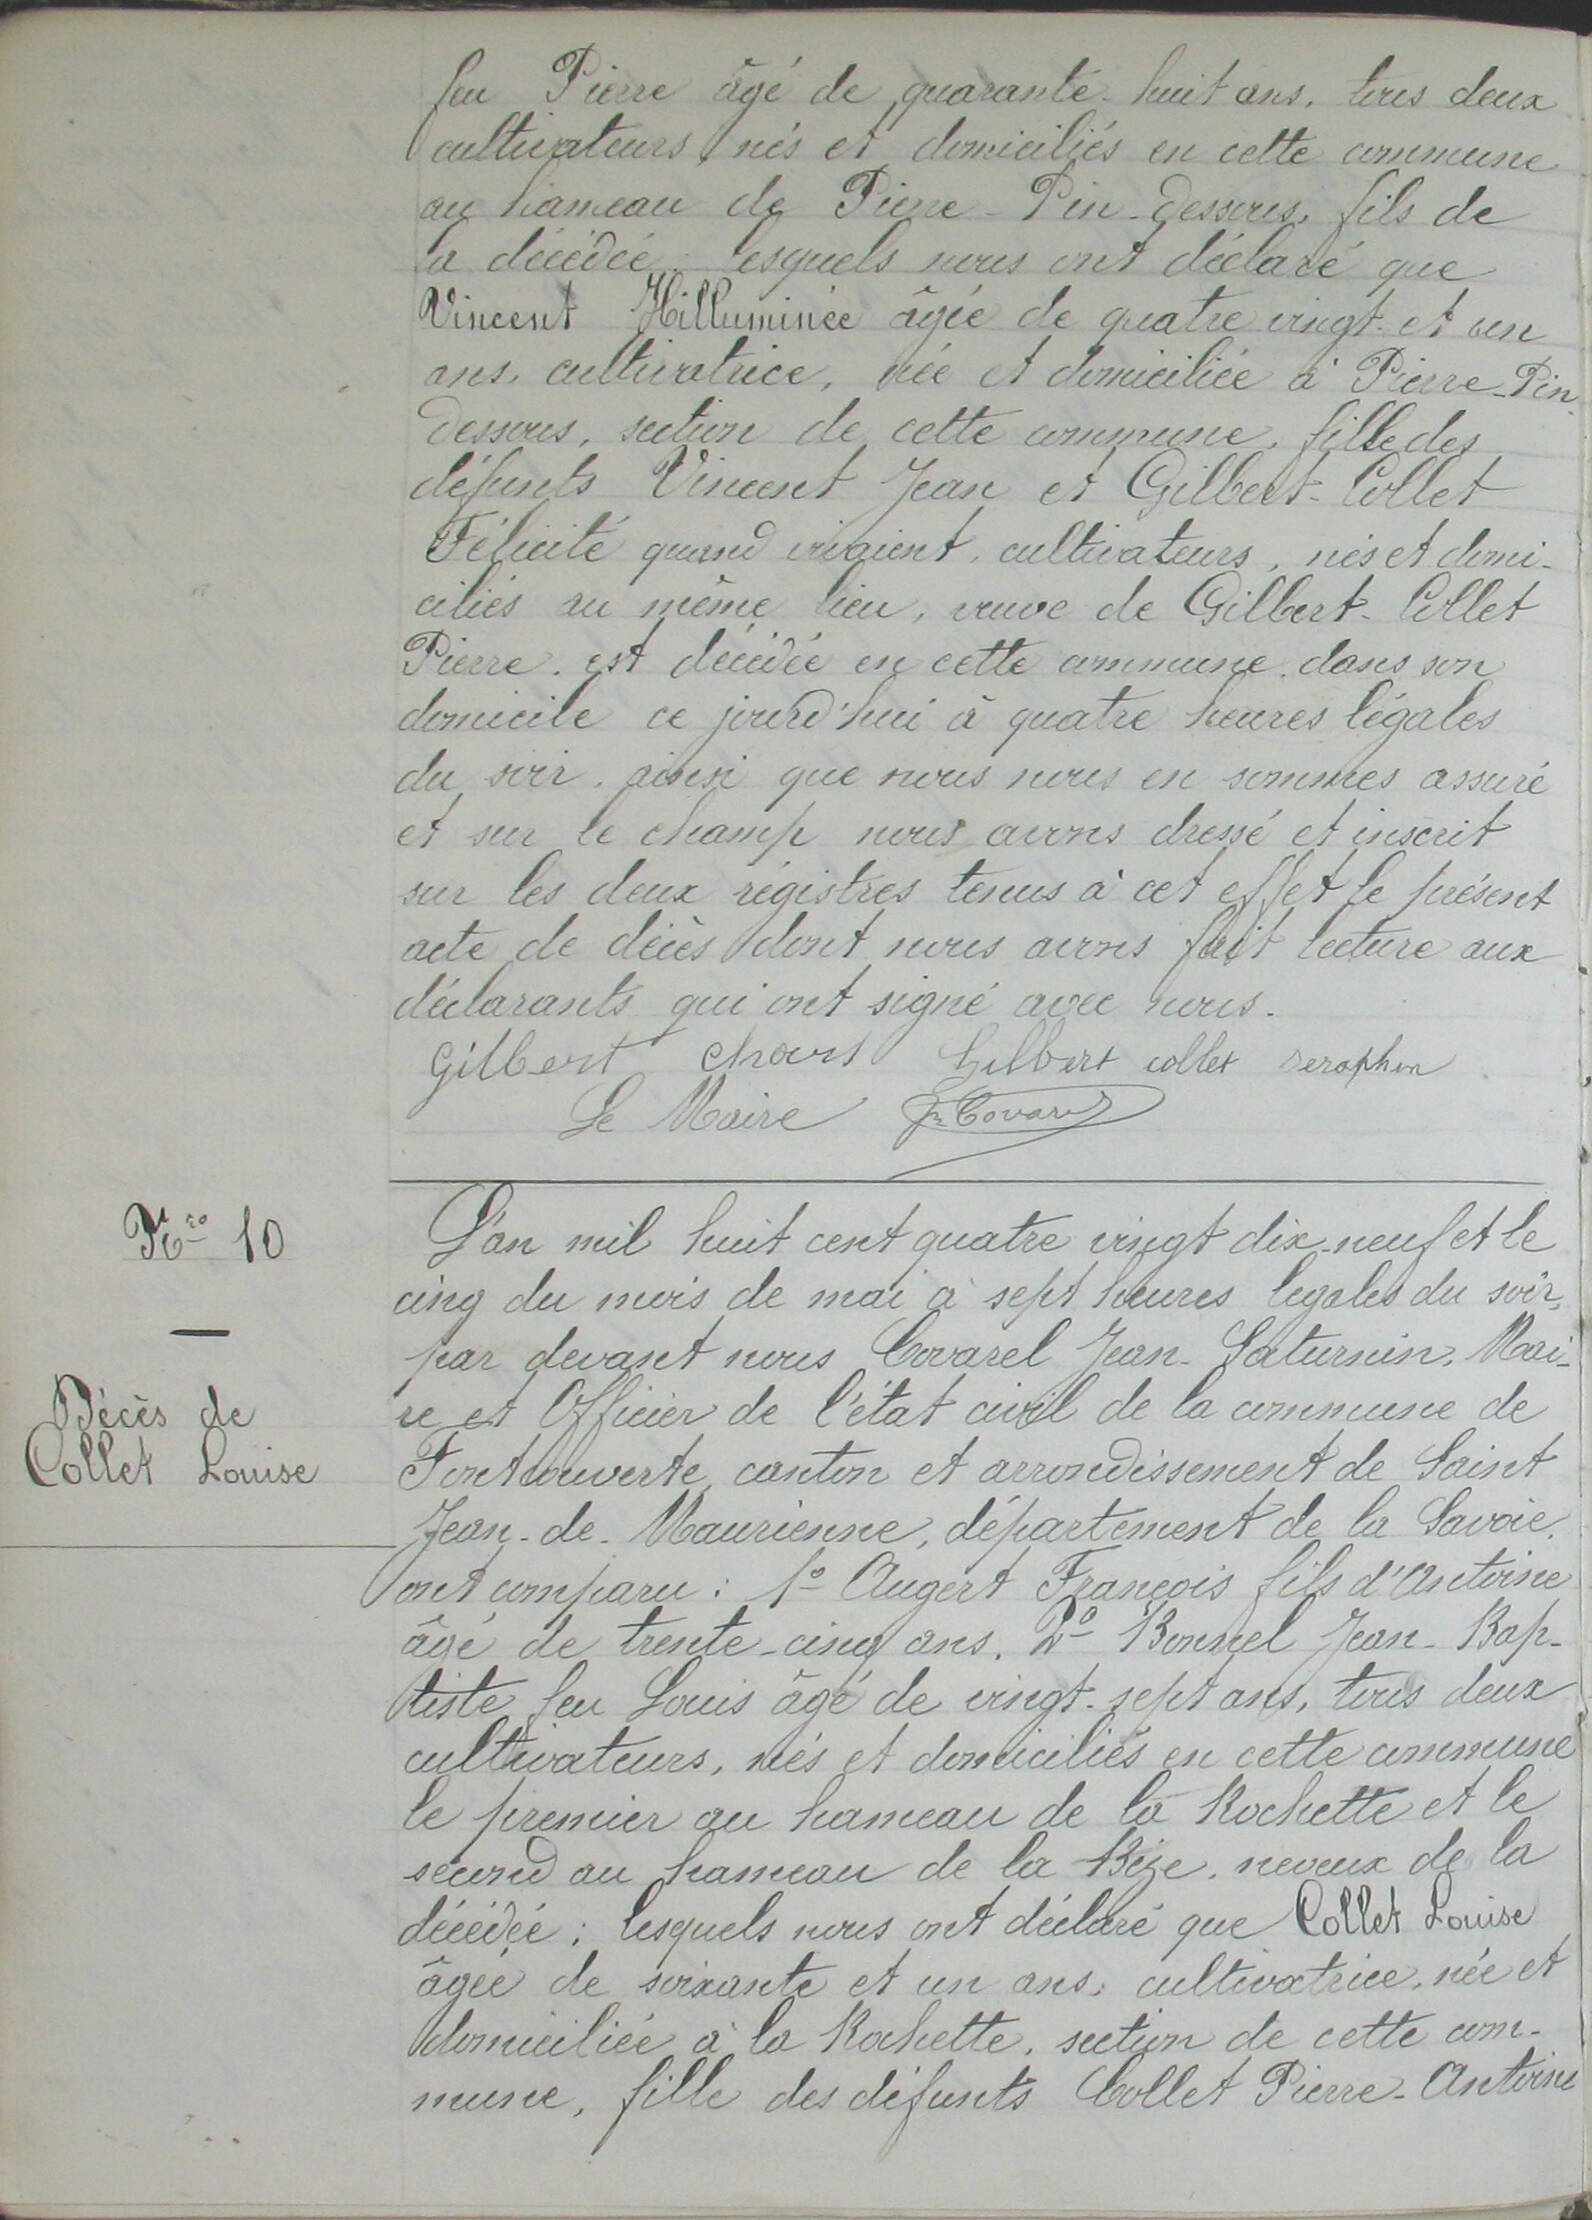 feu Pierre âgé de quarante-huit ans, tous deux
cultivateurs, nés et domiciliés en cette commune
au hameau de Pierre-Pin-dessous, fils de
la décédée ; lesquels nous ont déclaré que
Vincent Hilluminée âgée de quatre vingt-et un
ans, cultivatrice, née et domiciliée à Pierre-Pin-
dessous, section de cette commune, fille des
défunts Vincent Jean et Gilbert-Collet
Félicité quand vivaient, cultivateurs, nés et domi-
ciliés au même lieu, veuve de Gilbert-Collet
Pierre, est décédée en cette commune, dans son
domicile ce jourd'hui à quatre heures légales
du soir, ainsi que nous nous en sommes assuré
et sur le champ nous avons dressé et inscrit
sur les deux régistres tenus à cet effet le présent
acte de décès dont nous avons fait lecture aux
déclarants qui ont signé avec nous.
Gilbert Gilbert collet seraphin
Le Maire Jn Covarel
Nro 10
L'an mil huit cent quatre vingt dix-neuf et le
cinq du mois de mai à sept heures légales du soir,
par devant nous Covarel Jean-Saturnin, Mai-
re et Officier de l'état civil de la commune de
Décès de
Collet Louise
Fontcouverte, canton et arrondissement de Saint
Jean-de-Maurienne, département de la Savoie,
ont comparu : 1º Augert François fils d'Antoine
âgé de trente-cinq ans, 2º Bonnel Jean-Bap-
tiste feu Louis âgé de vingt-sept ans, tous deux
cultivateurs, nés et domiciliés en cette commune
le premier au hameau de la Rochette et le
second au hameau de la Bize, neveux de la
décédée ; lesquels nous ont déclaré que Collet Louise
âgée de soixante et un ans, cultivatrice, née et
domiciliée à la Rochette, section de cette com-
mune, fille des défunts Collet Pierre-Antoine